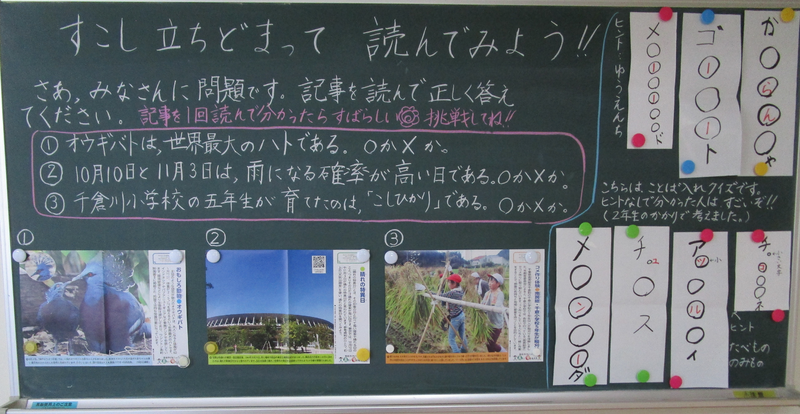 すこし立ちどまって 読んでみよう!!
さあ、みなさんに問題です。記事を読んで正しく答え
てください。記事を1回読んで分かったらすばらしい 挑戦してね!!
① オウギバトは、世界最大のハトである。○か×か。
② 10月10日と11月3日は、雨になる確率が高い日である。○か×か。
③ 千倉川小学校の五年生が育てたのは、「こしひかり」である。○か×か。
①
②
③
おもしろ動物 オウギバト
晴れの特異日
ヒント:ゆうえんち
メ○ー○ー○ド
ゴー○○ート
か○らん○ゃ
こちらは、ことば入れクイズです。
ヒントなしで分かった人は すごいぞ!!
(2年生のかかりで考えました。)
メ○ン○ーダ
チ○ス
ア○ル○ィ
ヒント
たべもの
のみもの